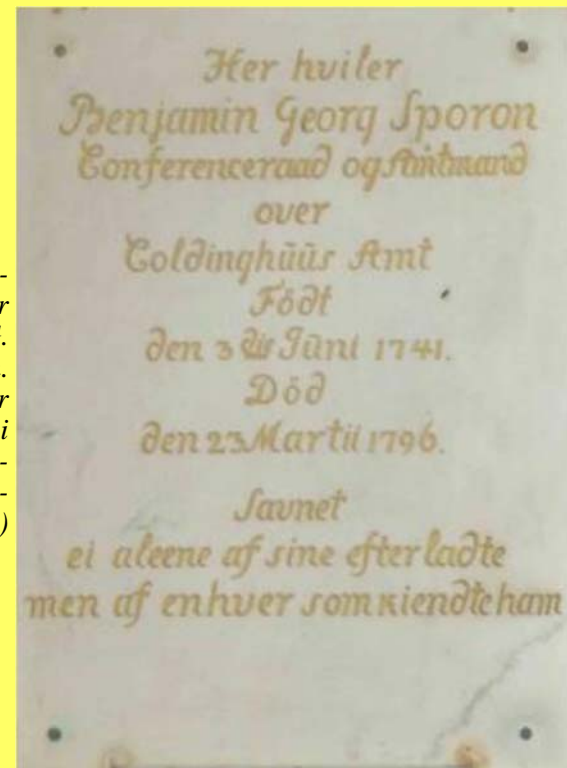 -
r
.
.
r
i
-
-
)
Her hviler
Benjamin Georg Sporon
Conferenceraad og Amtmand
over
Coldinghüüs Amt
Födt
den 3die Jüni 1741.
Död
den 23 Martii 1796.
Savnet
ei aleene af sine efterladte
men af enhver som kiendte ham